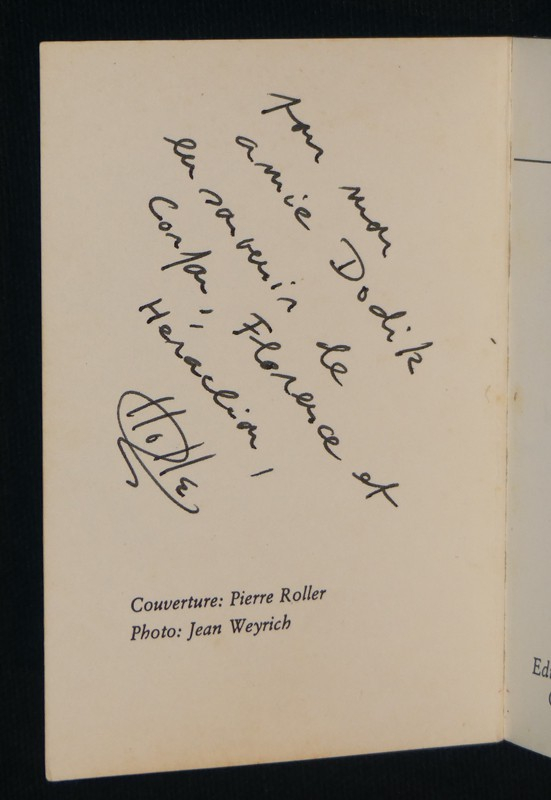 Pour mon
amie Dodik
en souvenir de
Corfou, Florence et
Héraclion,
Couverture: Pierre Roller
Photo: Jean Weyrich